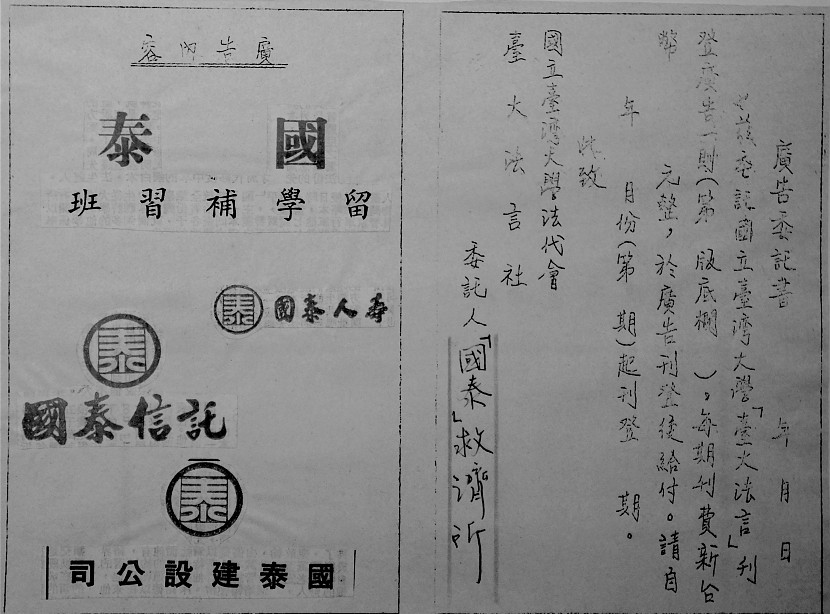 廣告委託書
年 月 日
茲委託國立臺灣大學「臺大法言」刊
登廣告一則(第 版底欄 )。每期刊費新台
幣 元整,於廣告刊登後給付。請自
年 月份(第 期)起刊登 期。
此致
國立臺灣大學法代會
臺大法言社
委託人「國泰」救濟所
廣告內容
國泰
留學補習班
泰
國泰人壽
泰
國泰信託
泰
國泰建設公司